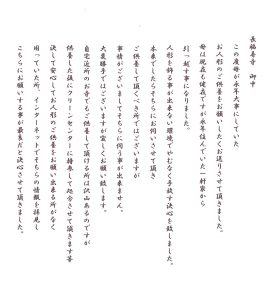 長福寿寺 御中
この度母が永年大事にしていた
お人形のご供養をお願いしたくお送りさせて頂きました。
母は現在も健在ですが永年住んでいた一軒家から
引っ越す事になりました。
人形を飾る事が出来ない環境でやむなく手放す決心を致しました。
本来でしたらそちらにお伺いさせて頂き
ご供養して頂くべき所ではございますが
事情がございましてそちらに伺う事が出来ません。
大変勝手ではございますが宜しくお願い致します。
自宅近所のお寺でもご供養して頂ける所は沢山あるのですが
供養した後にクリーンセンターに持参して処分させて頂きます等
決して安心してお人形のご供養をお願い出来る所がなく
困っていた所、インターネットでそちらの情報を拝見し
こちらにお願いする事が最良だと決心させて頂きました。